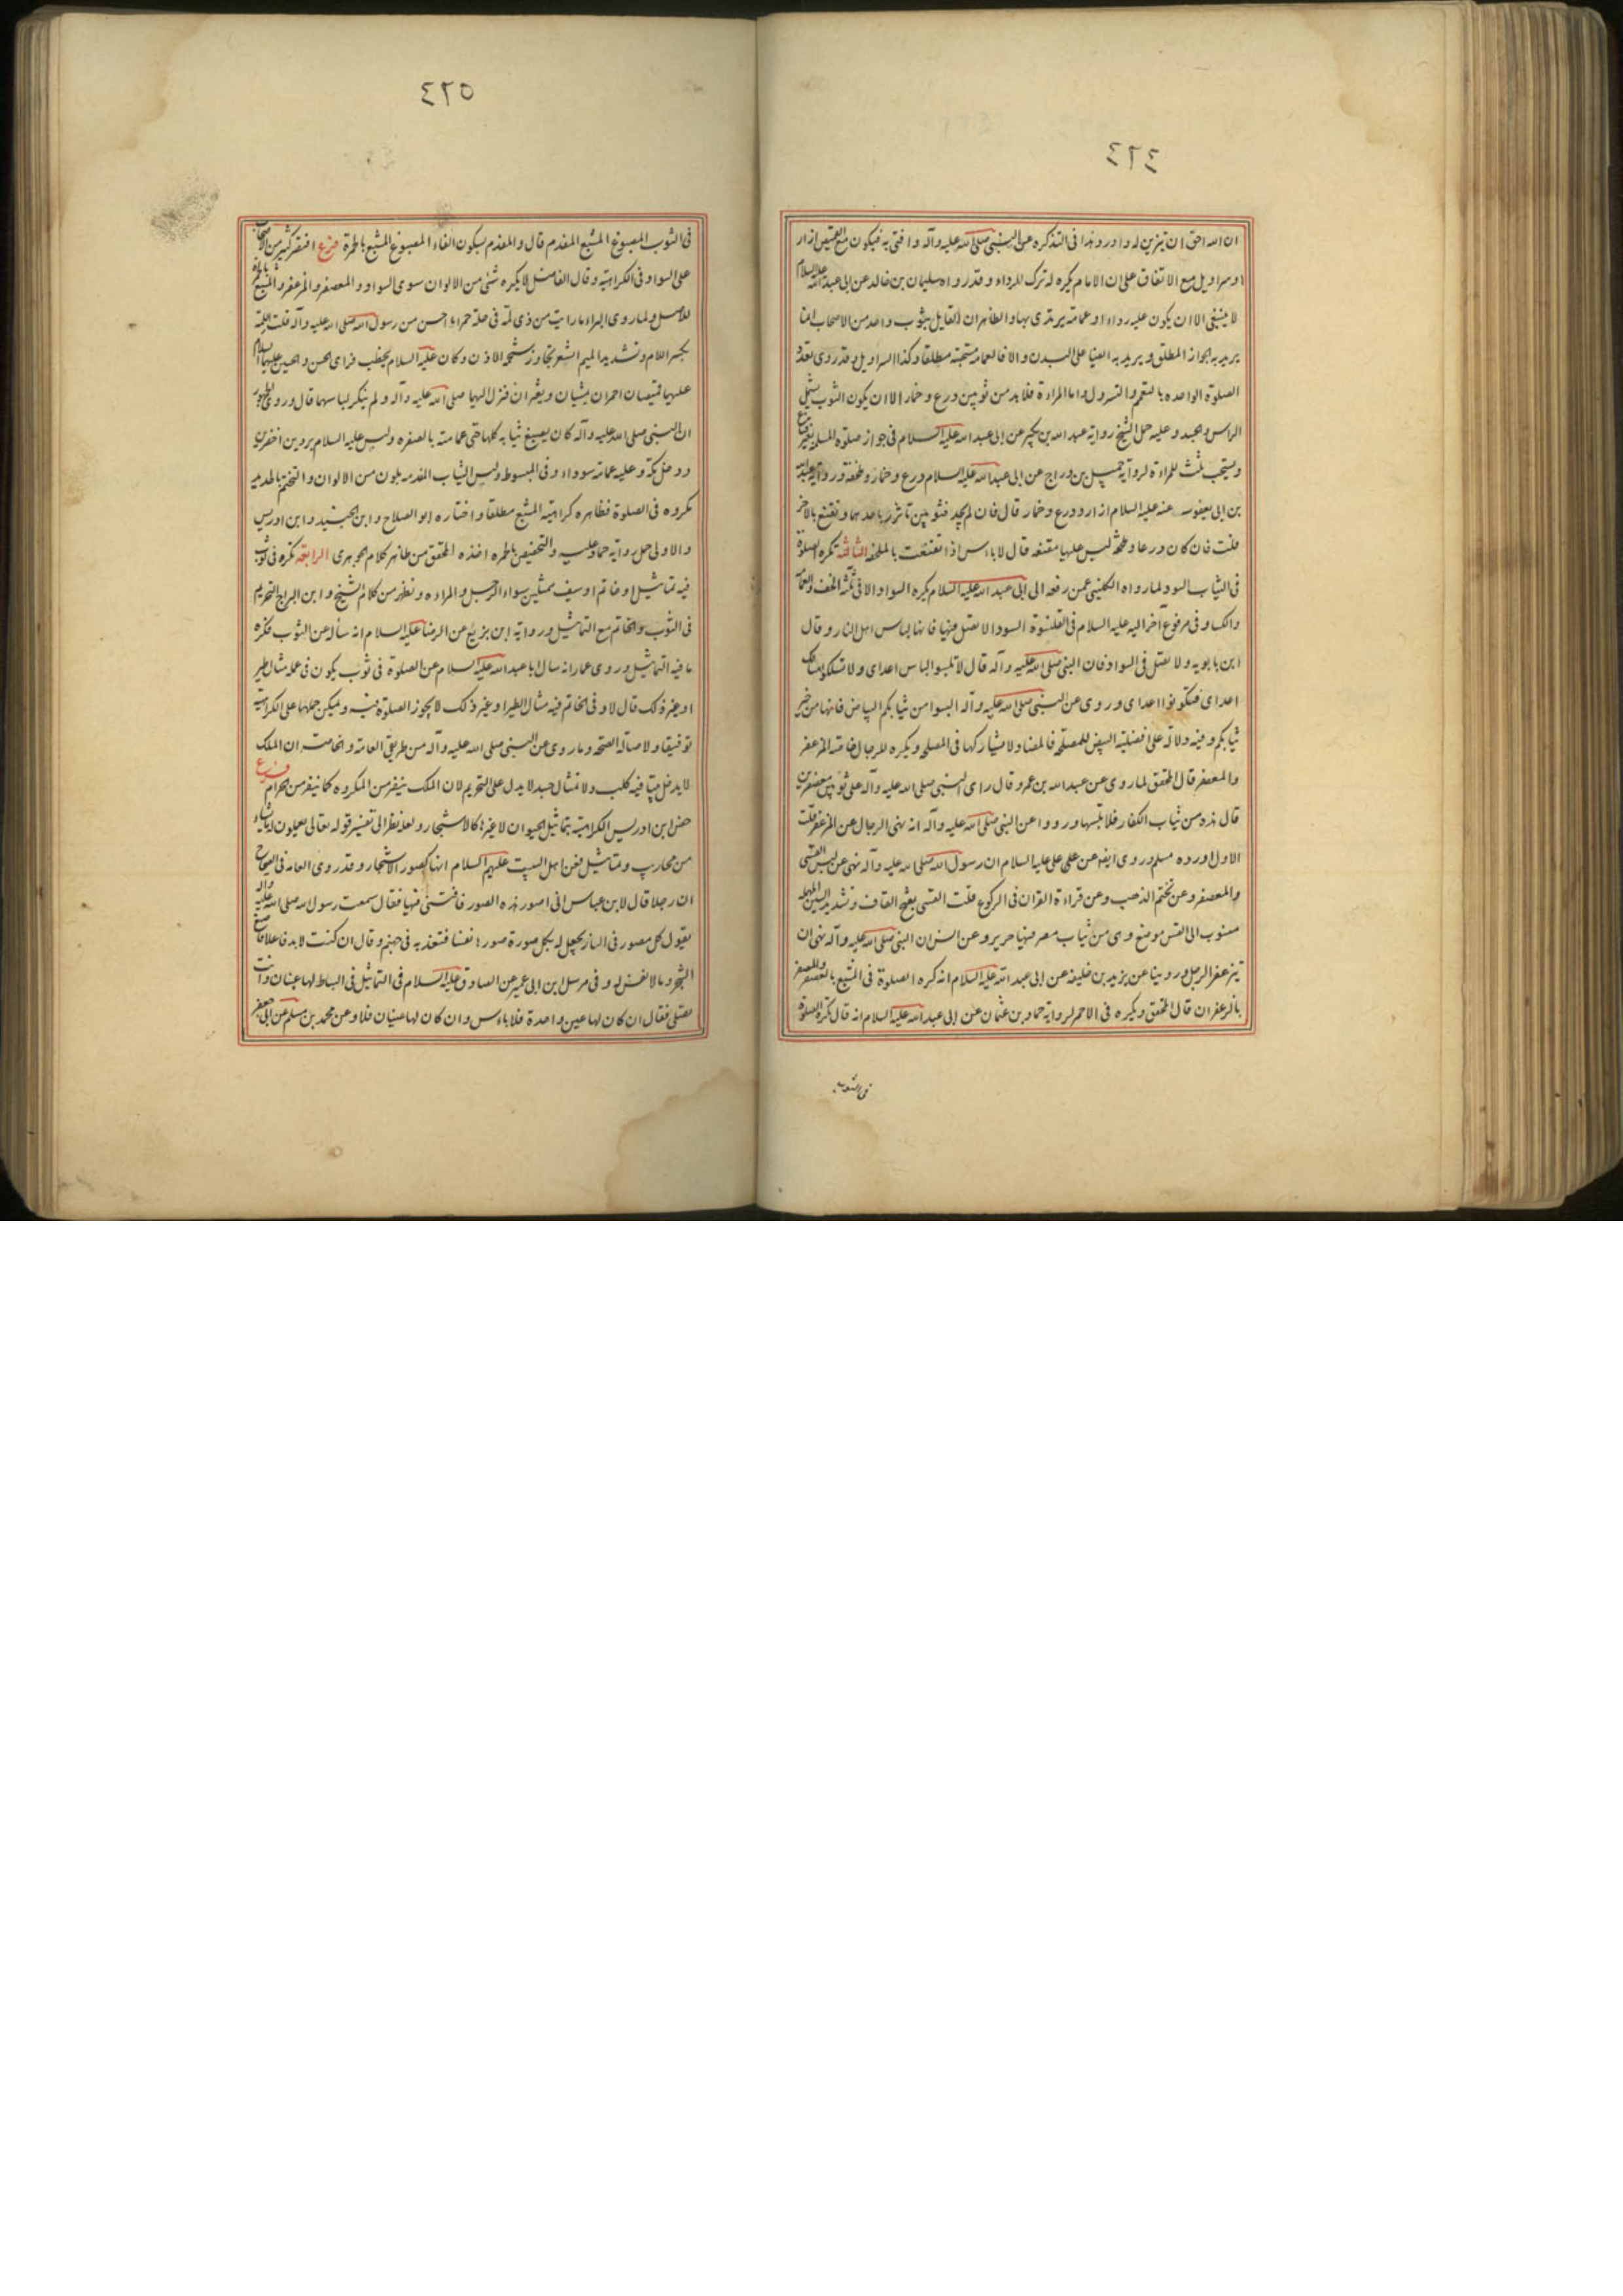 ٤٢٤
ان الله احق ان يتزين له و اورد هذا فى التذكره عن النبى صلى الله عليه وآله و افتى به فيكون مع القميص ازار
او سراويل مع الاتفاق على ان الامام يكره له ترك الرداء و قد رواه سليمان بن خالد عن ابى عبد الله عليه السلام
لا ينبغى الا ان يكون عليه رداء او عمامة يرتدى بها و الظاهر ان القايل بثوب واحد من الاصحاب انما
يريد به الجواز المطلق و يريد به ايضا على البدن و الا فالعمامة مستحبة مطلقا و كذا السراويل و قد روى تعدد
الصلوة الواحده بالتعمم و التسرول و اما المراءة فلا بد من ثوبين درع و خمار الا ان يكون الثوب يشمل
الراس و الجسد و عليه حمل الشيخ رواية عبد الله بن بكير عن ابى عبد الله عليه السلام فى جواز صلوة المسلمة بغير قناع
و يستحب ثلث للمراءة لرواية جميل بن دراج عن ابى عبد الله عليه السلام درع و خمار و ملحفة و رواية عبد الله
بن ابى يعفور عنه عليه السلام ازار و درع و خمار قال فان لم تجد فثوبين تاتزر باحدهما و تقنع بالاخر
قلت فان كان درعا و ملحفة ليس عليها مقنعه قال لا باءس اذا تقنعت بالملحفه الثالثة تكره الصلوة
فى الثياب السود لما رواه الكلينى عمن رفعه الى ابى عبد الله عليه السلام يكره السواد الا فى ثلثة الخف و العمامة
و الكساء و فى مرفوع آخر اليه عليه السلام فى القلنسوة السوداء لا تصل فيها فانها لباس اهل النار و قال
ابن بابويه و لا تصل فى السواد فان النبى صلى الله عليه و آله قال لا تلبسوا لباس اعداى و لا تسلكوا مسالك
اعداى فتكونوا اعداى و روى عن النبى صلى الله عليه وآله البسوا من ثيابكم البياض فانها من خير
ثيابكم و فيه دلالة على افضلية البيض للمصلحة فالمضاد لا يشاركها فى المصلحه و يكره للرجال خاصة المزعفر
و المعصفر قال المحقق لما روى عن عبد الله بن عمرو قال راى النبى صلى الله عليه وآله على ثوبين معصفرين
قال هذه من ثياب الكفار فلا تلبسها و رووا عن النبى صلى الله عليه وآله انه نهى الرجال عن المزعفر قلت
الاول اورده مسلم و روى ايضا عن على عليه السلام ان رسول الله صلى الله عليه وآله نهى عن لبس القسى
و المعصفر و عن تختم الذهب و عن قراءة القران فى الركوع قلت القسى بفتح القاف و تشديد السين المهمله
منسوب الى القس موضع و هى من ثياب مصر فيها حرير و عن انس ان النبى صلى الله عليه وآله نهى ان
يتزعفر الرجل و روينا عن يزيد بن خليفه عن ابى عبد الله عليه السلام انه كره الصلوة فى المشبع بالعصفر و المضرج
بالزعفران قال المحقق و يكره فى الاحمر لرواية حماد بن عثمان عن ابى عبد الله عليه السلام انه قال تكره الصلوة
فى الثوب
٤٢٥
فى الثوب المصبوغ المشبع المفدم قال و المفدم بسكون الفاء المصبوغ المشبع بالحمرة فرع اقتصر كثير من الاصحاب
على السواد فى الكراهية و قال الفاضل لا يكره شىء من الالوان سوى السواد و المعصفر و المزعفر و المشبع بالحمرة
للاصل و لما روى البراء ما رايت من ذى لمة فى حلة حمراء احسن من رسول الله صلى الله عليه وآله قلت اللمة
بكسر اللام و تشديد الميم الشعر يتجاوز شحمة الاذن و كان عليه السلام يخطب فراى الحسن و الحسين عليهما السلام
عليهما قميصان احمران يمشيان و يعثران فنزل اليهما صلى الله عليه وآله و لم ينكر لباسهما قال و روى الجمهور
ان النبى صلى الله عليه وآله كان يصبغ ثيابه كلها حتى عمامته بالصفره و لبس عليه السلام بردين اخضرين
و دخل مكة و عليه عمامة سوداء و فى المبسوط و لبس الثياب المفدمه بلون من الالوان و التختم بالحديد
مكروه فى الصلوة فظاهره كراهية المشبع مطلقا و اختاره ابو الصلاح و ابن الجنيد و ابن ادريس
و الاولى حمل رواية حماد عليه و التخصيص بالحمره اخذه المحقق من ظاهر كلام الجوهرى الرابعة تكره فى ثوب
فيه تماثيل او خاتم او سيف ممثلين سواء الرجل و المراءه و يظهر من كلام الشيخ و ابن البراج التحريم
فى الثوب و الخاتم مع التماثيل و رواية ابن بزيع عن الرضا عليه السلام انه ساله عن الثوب فكره
ما فيه التماثيل و روى عمار انه سال ابا عبد الله عليه السلام عن الصلوة فى ثوب يكون فى علمه مثال طير
او غير ذلك قال لا و فى الخاتم فيه مثال الطير او غير ذلك لا يجوز الصلوة فيه و يمكن حملها على الكراهية
توفيقا و لاصالة الصحه و ما روى عن النبى صلى الله عليه وآله من طريق العامة و الخاصة ان الملك
لا يدخل بيتا فيه كلب و لا تمثال جسد لا يدل على التحريم لان الملك ينفر من المكروه كما ينفر من الحرام فرع
خص ابن ادريس الكراهية بتماثيل الحيوان لا غيرها كالاشجار و لعله نظر الى تفسير قوله تعالى يعملون له ما يشاء
من محاريب و تماثيل فعن اهل البيت عليهم السلام انها كصور الاشجار و قد روى العامه فى الصحاح
ان رجلا قال لابن عباس انى اصور هذه الصور فافتنى فيها فقال سمعت رسول الله صلى الله عليه وآله
يقول كل مصور فى النار يجعل له بكل صورة صورها نفسا فتعذبه فى جهنم و قال ان كنت لا بد فاعلا فاصنع
الشجر و ما لا نفس له و فى مرسل ابن ابى عمير عن الصادق عليه السلام فى التماثيل فى البساط لها عينان و انت
تصلى فقال ان كان لها عين واحدة فلا باءس و ان كان لها عينان فلا و عن محمد بن مسلم عن ابى جعفر